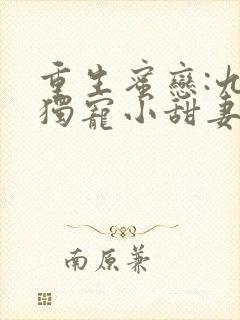 重生蜜戀:九
獨寵小甜妻
南原兼